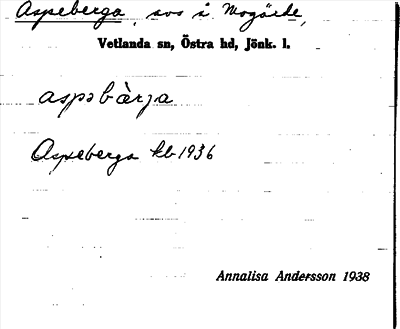 Aspeberga, sos i Mogärde,
Vetlanda sn, Östra hd, Jönk. l.
aspəbàrja
Aspeberga kb 1936
Annalisa Andersson 1938